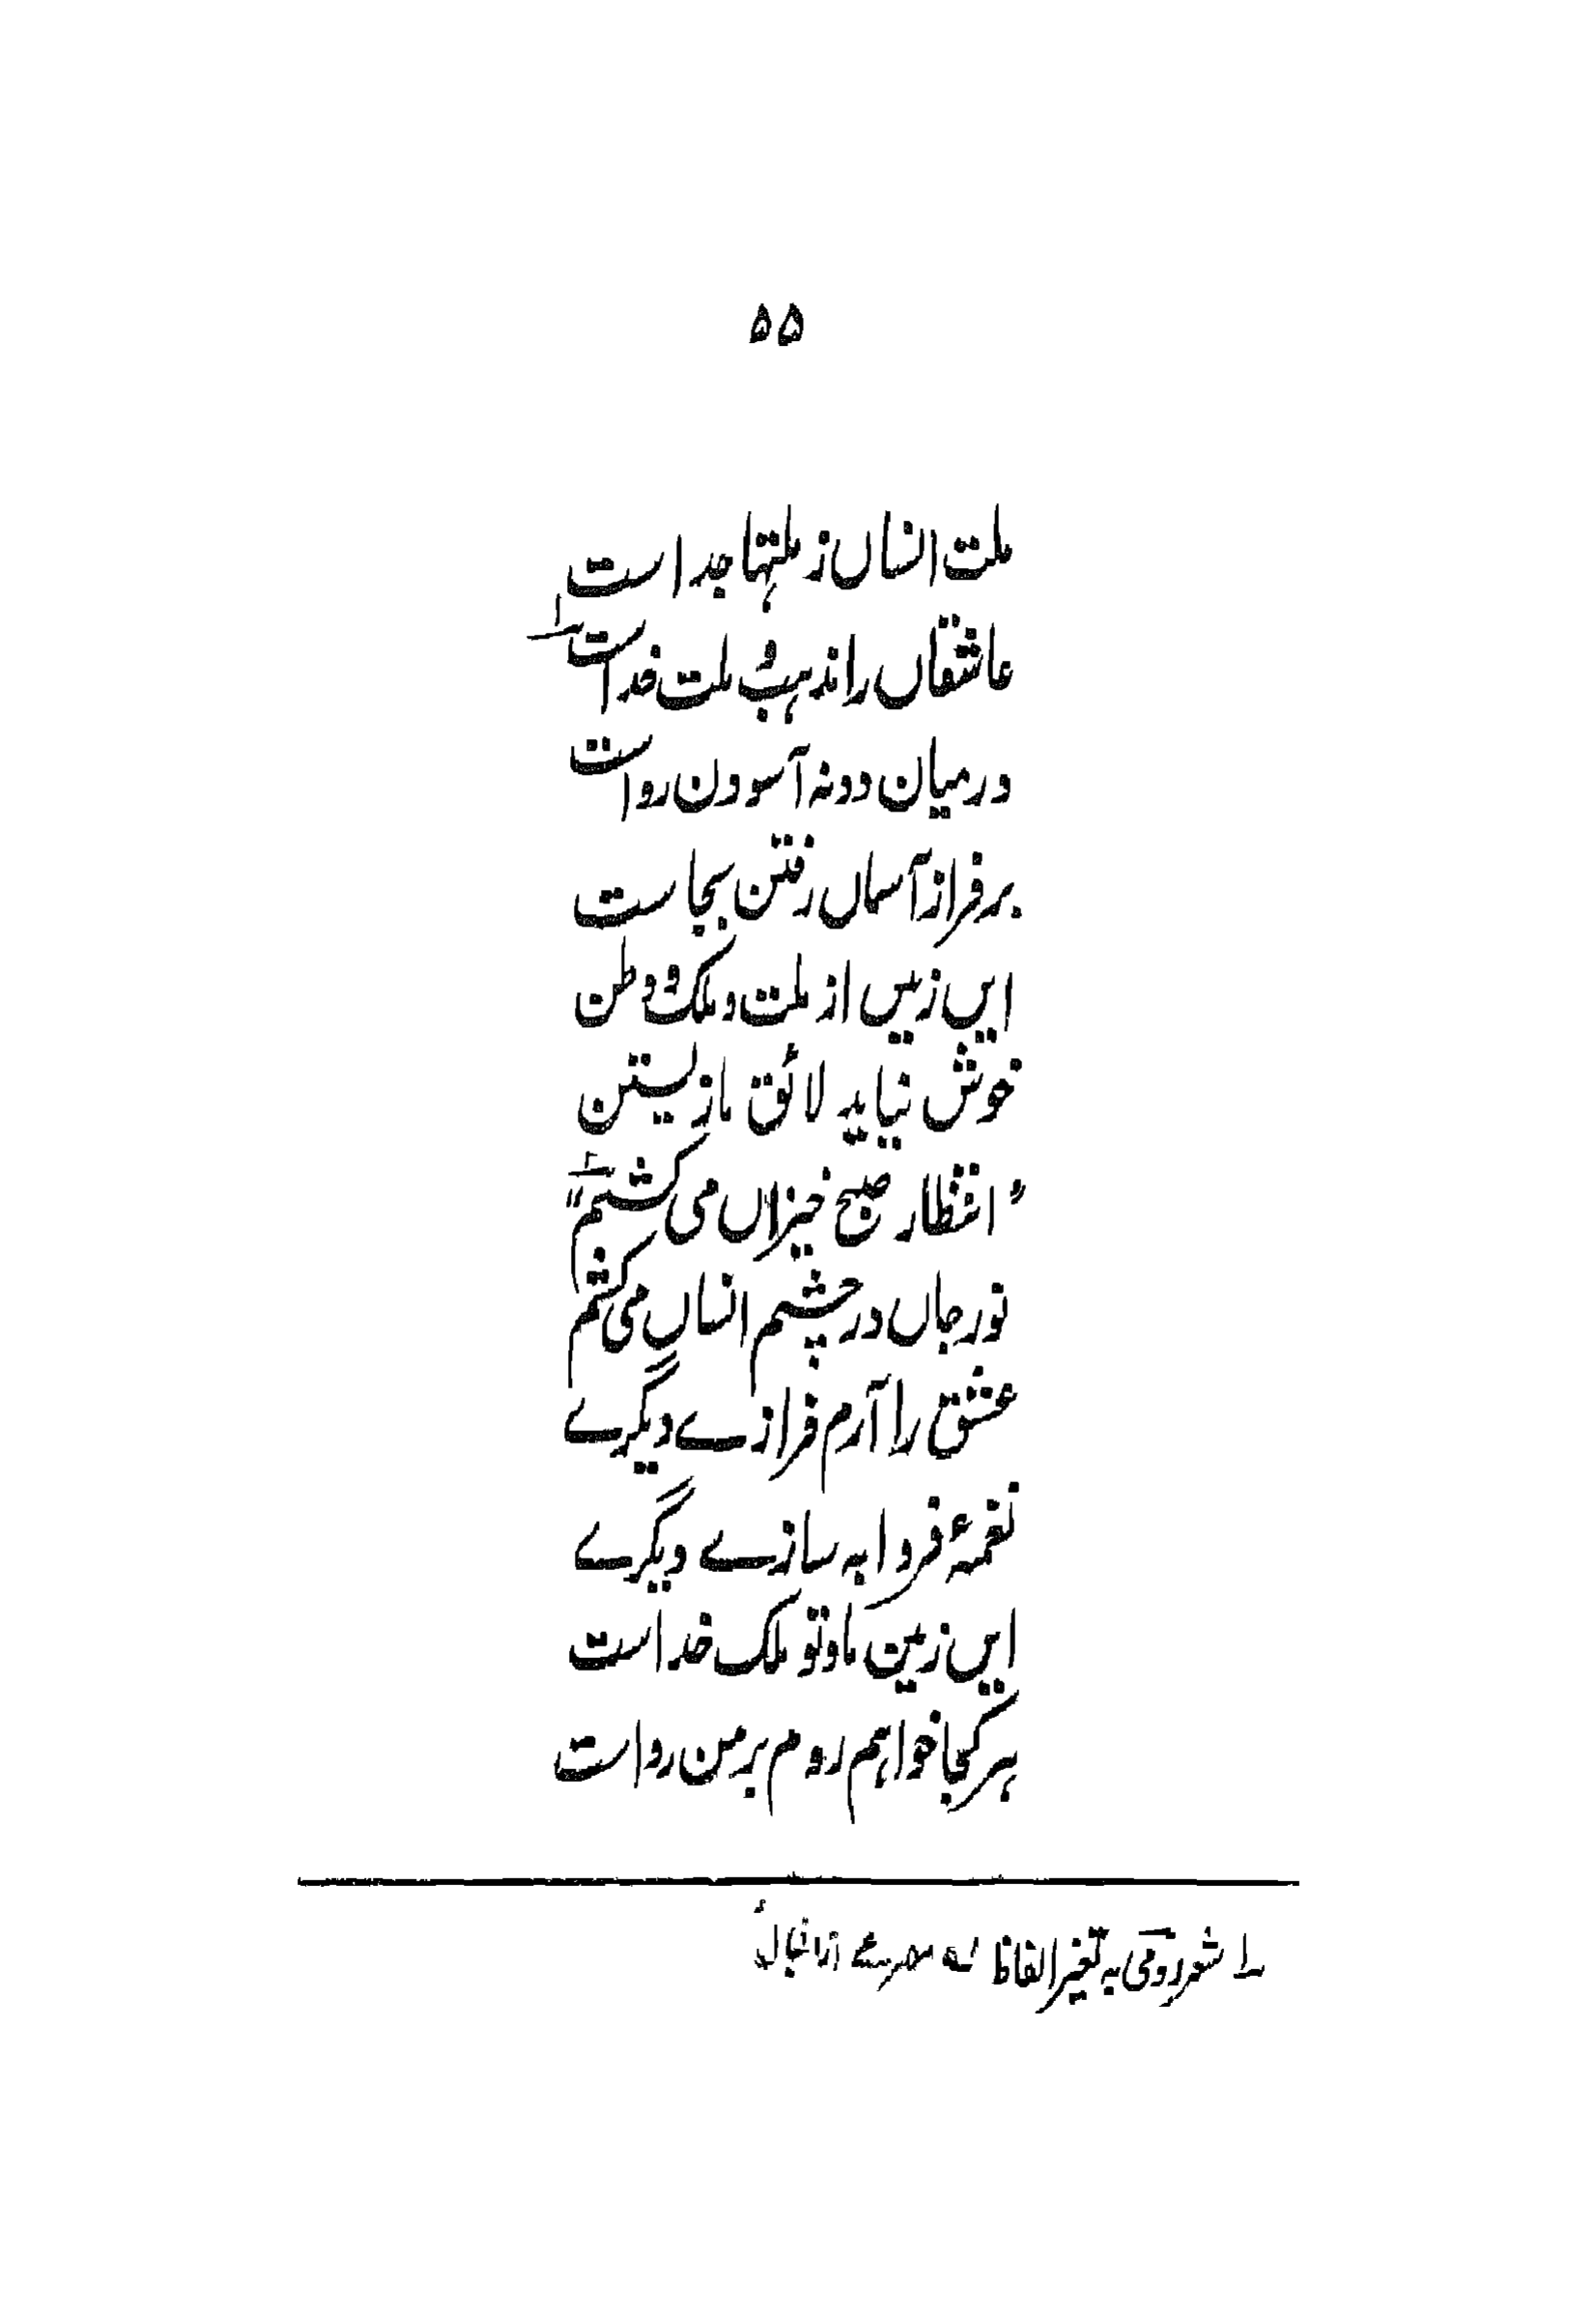 ۵۵
ملت انساں ز ملتہا جداست
عاشقاں را مذہب و ملت خداست ؎۱
درمیان دو نہ آسودن رواست
بر فراز آسماں رفتن بجاست
ایں زمیں از ملت و ملک و وطن
خوش نیاید لائق ما زیستن
"انتظار صبح خیزاں می کشیم" ؎۲
نور جاں در چشم انساں می کشم
عشق را آرم فرازے دیگرے
نغمۂ فردا بہ سازے دیگرے
ایں زمین ما و تو ملک خداست
ہر کجا خواہم روم بر من رواست
؎۱ شعر رومی بہ تغیر الفاظ ؎۲ مصرعے از اقبالؒ